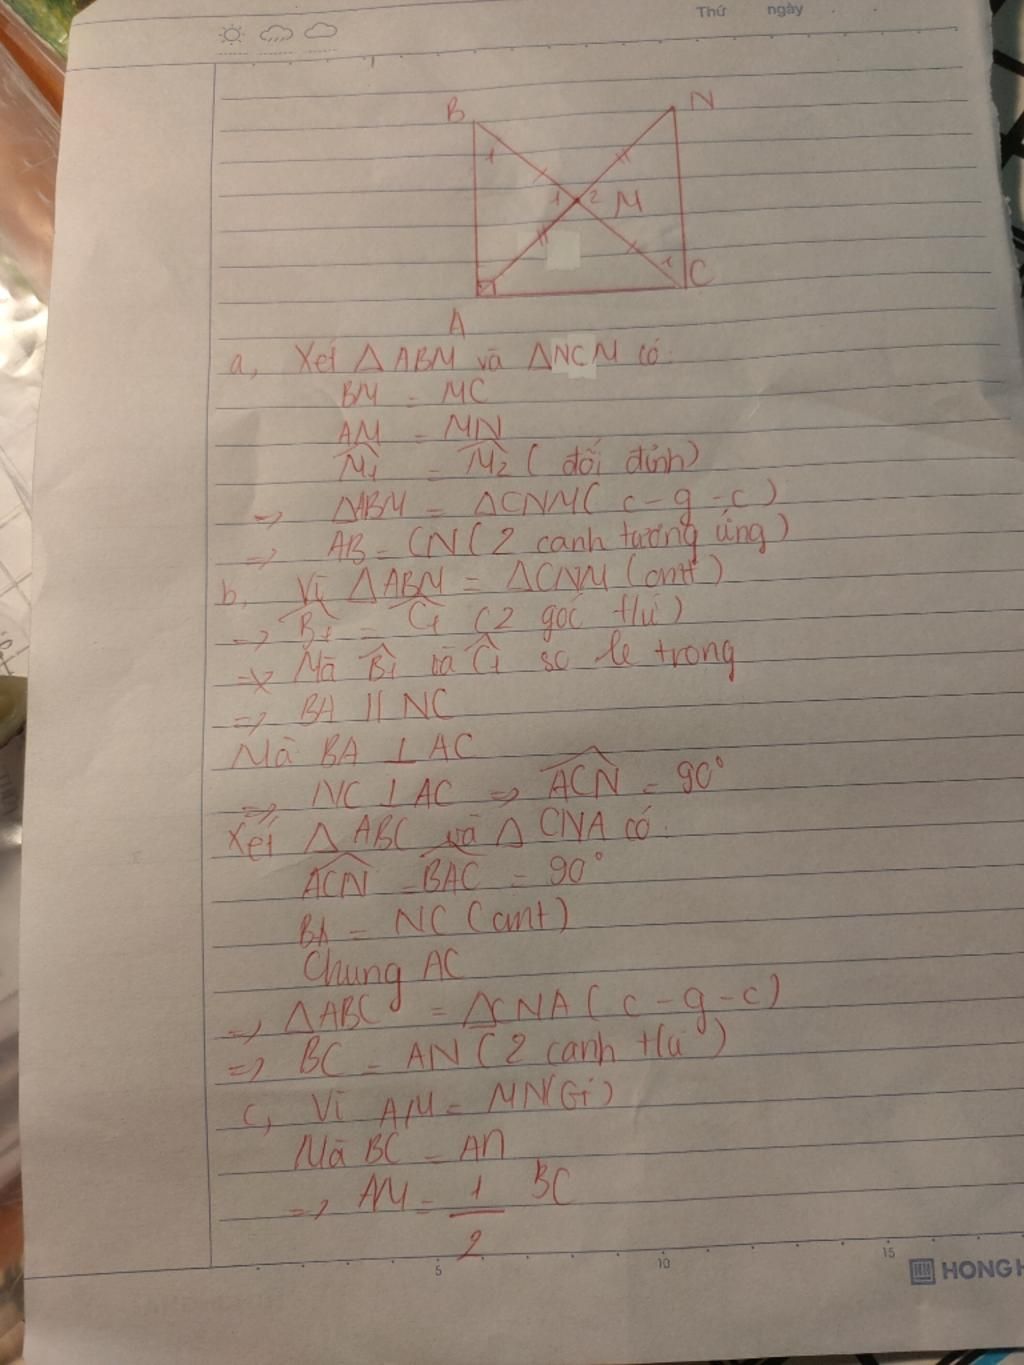 Thứ ngày
B N
1 1 2 M
1 C
A
a, Xét △ABM và △NCM có:
BM = MC
AM = MN
M̂1 = M̂2 ( đối đỉnh)
=> △ABM = △CNM( c-g-c)
=> AB = CN( 2 canh tương ứng)
b, Vì △ABM = △CNM (cmt)
=> B̂1 = Ĉ1 (2 góc tứ)
Mà B̂1 và Ĉ1 so le trong
=> BA // NC
Mà BA ⊥ AC
=> NC ⊥ AC => ACN = 90°
Xét △ABC và △CNA có:
ACN = BAC = 90°
BA = NC (cmt)
Chung AC
=> △ABC = △CNA( c-g-c)
=> BC = AN (2 canh tứ)
c, Vì AM = MN(Gt)
Mà BC = AN
=> AM = 1/2 BC
5 10 15
HONG H